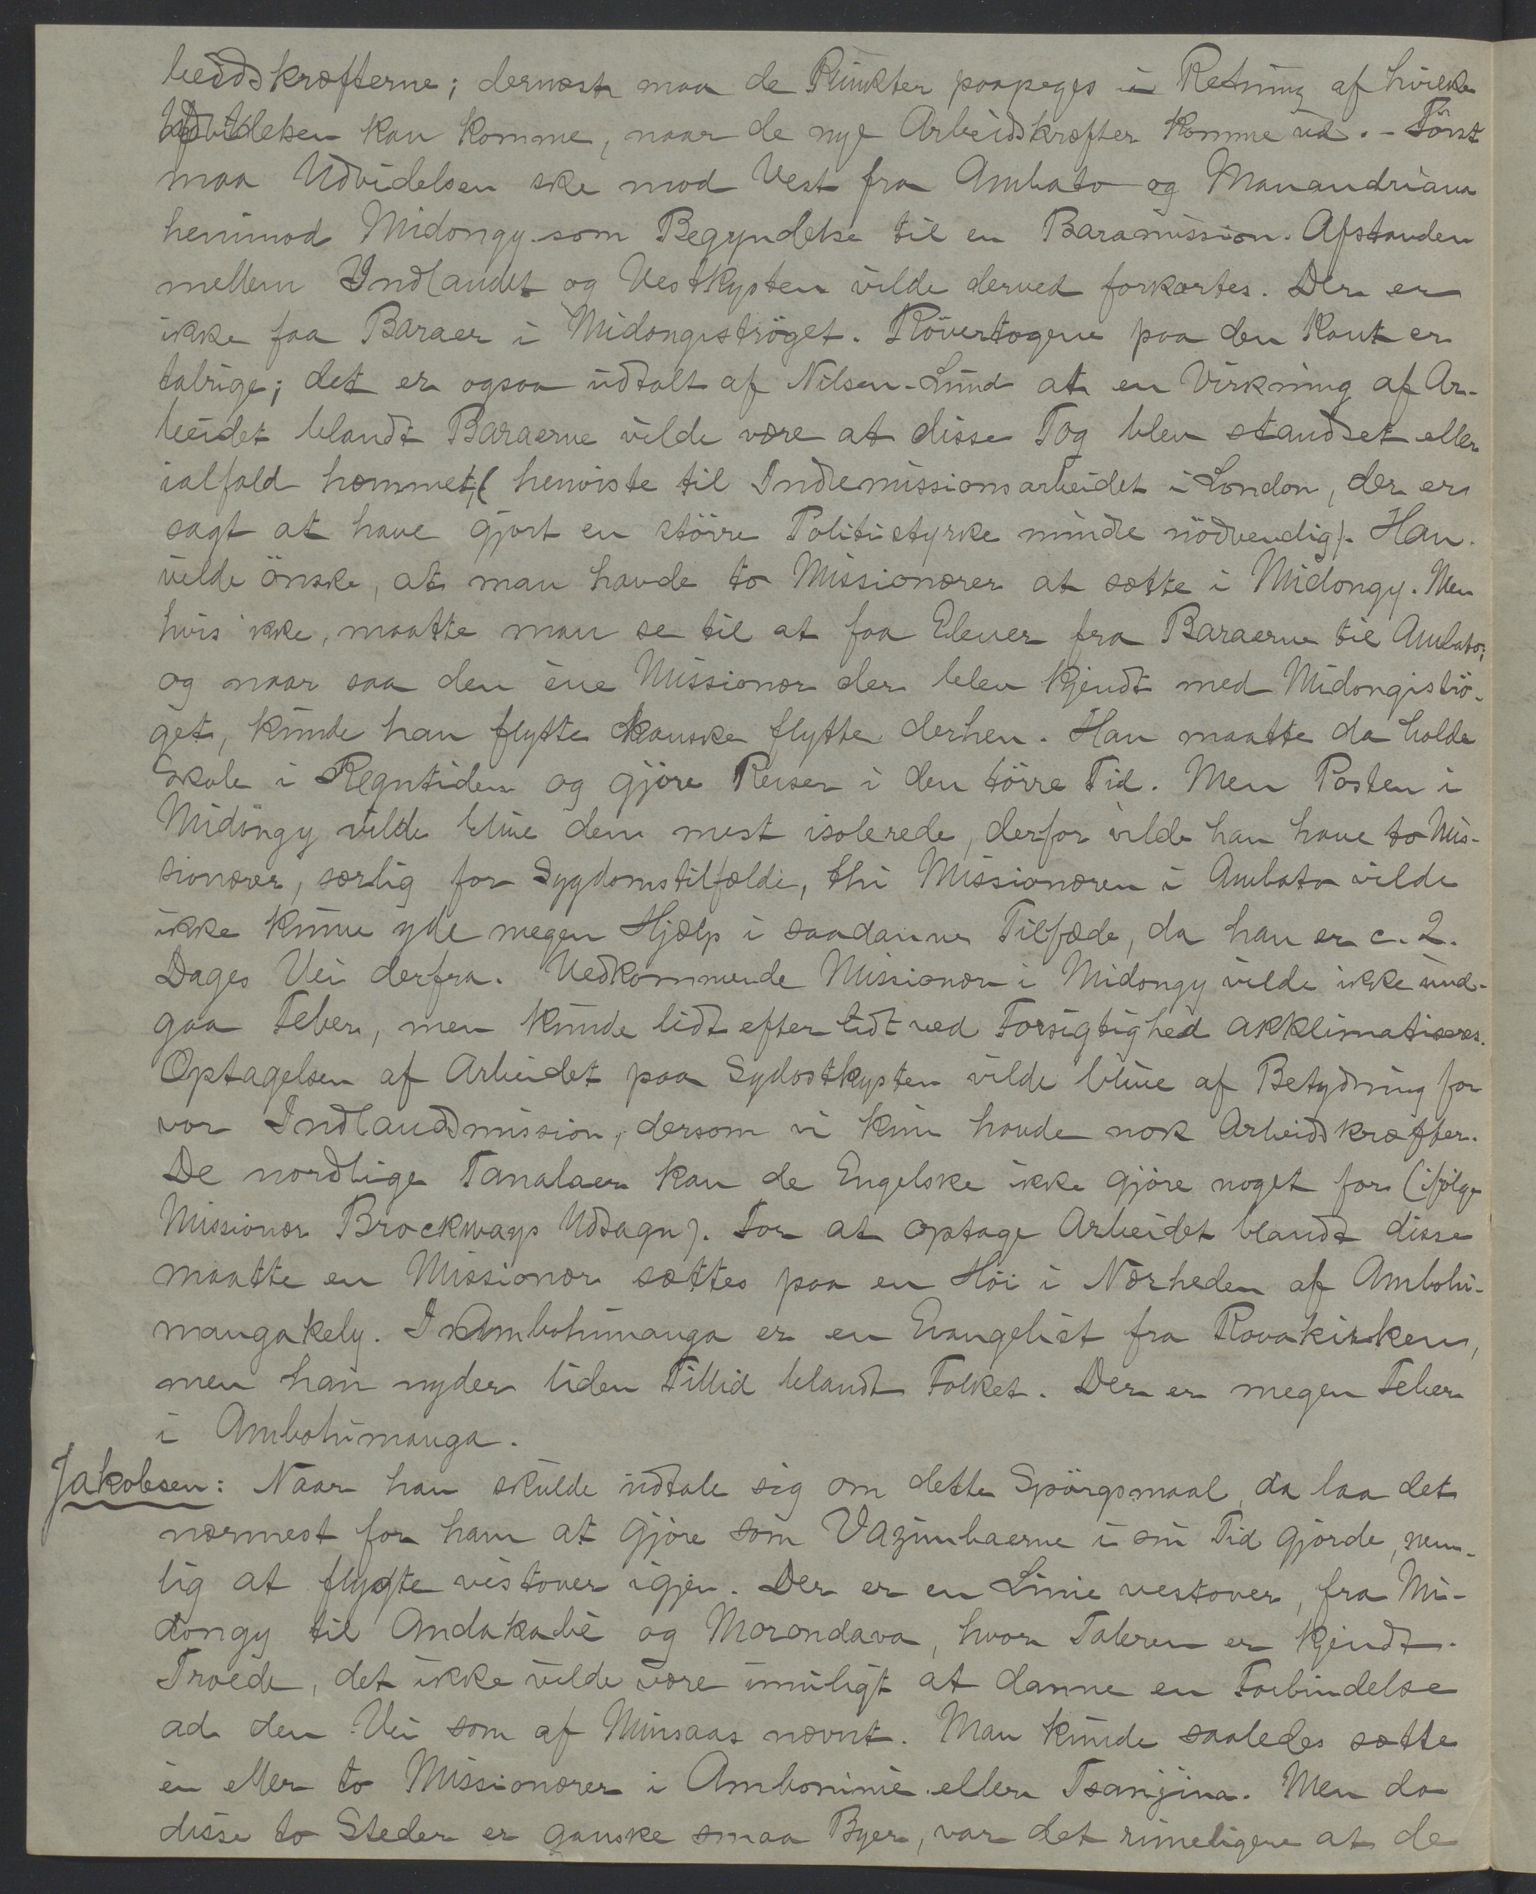 beidskræfterne; dernæst maa de Punkter paapeges i Retning af hvilke
Udvidelsen kan komme, naar de nye Arbeidskræfter komme ud. - Först
maa Udvidelsen ske mod Vest fra Ambato og Manandriana
henimod Midongy som Begyndelse til en Baramission. Afstanden
mellem Indlandet og Vestkysten vilde derved forkortes. Der er
ikke faa Baraer i Midongiströget. Rövertogene paa den Kant er
talrige; det er ogsaa udtalt af Nilsen-Lund at en Virkning af Ar-
beidet blandt Baraerne vilde være at disse Tog blev standset eller
ialfald hæmmet, (henviste til Indremissionsarbeidet i London, der er
sagt at have gjort en större Politistyrke mindre nödvendig). Han
vilde önske, at man havde to Missionærer at sætte i Midongy. Men
hvis ikke, maatte man se til at faa Elever fra Baraerne til Ambato;
og naar saa den ene Missionær der blev kjendt med Midongiströ-
get, kunde han flytte kanske flytte derhen. Han maatte da holde
Skole i Regntiden og gjöre Reiser i den törre Tid. Men Posten i
Midongy vilde blive den mest isolerede, derfor vilde han have to Mis-
sionærer, særlig for Sygdomstilfælde, thi Missionæren i Ambato vilde
ikke kunne yde megen Hjælp i saadanne Tilfæde, da han er c. 2.
Dages Vei derfra. Vedkommende Missionær i Midongy vilde ikke und-
gaa Feber, men kunde lidt efter lidt ved Forsigtighed akklimatiseres.
Optagelsen af Arbeidet paa Sydostkysten vilde blive af Betydning for
vor Indlandsmission, dersom vi kun havde nok Arbeidskræfter.
De nordlige Tanalaer kan de Engelske ikke gjöre noget for (ifölge
Missionær Brockways Udsagn). For at optage Arbeidet blandt disse
maatte en Missionær sættes paa en Höi i Nærheden af Ambohi-
mangakely. I Ambohimanga er en Evangelist fra Rovakirken,
men han nyder liden Tillid blandt Folket. Der er megen Feber
i Ambohimanga.
Jakobsen: Naar han skulde udtale sig om dette Spörgsmaal, da laa det
nærmest for ham at gjöre som Vazimbaerne i sin Tid gjorde, nem-
lig at flygte vestover igjen. Der er en Linie vestover, fra Mi-
dongy til Andakabe og Morondava, hvor Taleren er kjendt.
Troede, det ikke vilde være umuligt at danne en Forbindelse
ad den Vei som af Minsaas nævnt. Man kunde saaledes sætte
en eller to Missionærer i Ambonimie eller Tsanjina. Men da
disse to Steder er ganske smaa Byer, var det rimeligere at de